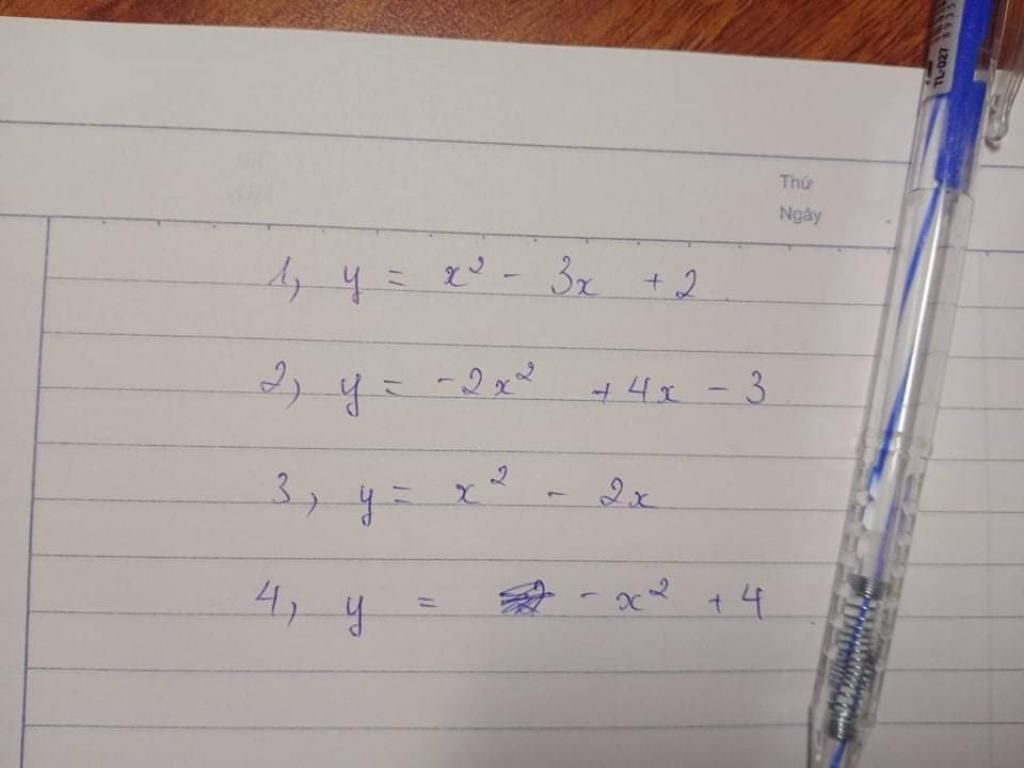 TL-027
Thứ
Ngày
1, y = x² - 3x + 2
2, y = -2x² + 4x - 3
3, y = x² - 2x
4, y = -x² + 4